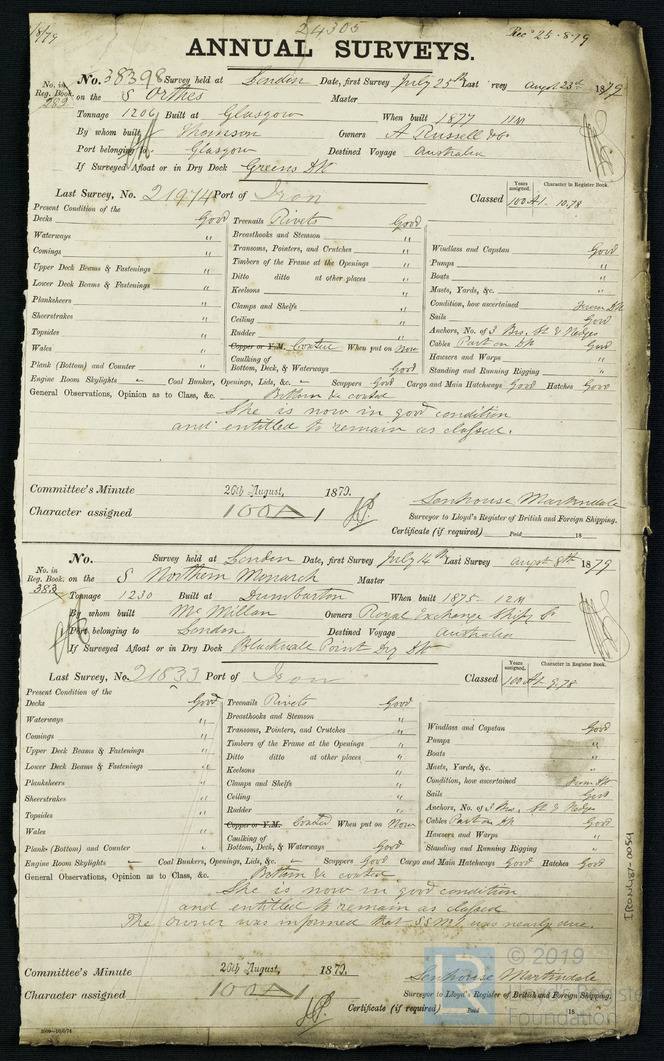 24305
1/8/79
Recd 25-8-79
ANNUAL SURVEYS.
No. 38398 Survey held at London Date, first Survey July 25th Last Survey augt 23rd 1879
No. in Reg. Book. 282 on the S Orthes Master
Tonnage 1206 Built at Glasgow When built 1877 11M
By whom built Thomson Owners A Russell & Co
Port belonging to Glasgow Destined Voyage Australia
If Surveyed Afloat or in Dry Dock Greens Dk
Last Survey, No. 21974 Port of Iron Classed Years assigned. 100 Character in Register Book. A1. 10,78
Present Condition of the
Decks Good Treenails Rivets Good
Waterways " Breasthooks and Stemson " Windlass and Capstan Good
Comings " Transoms, Pointers, and Crutches " Pumps "
Upper Deck Beams & Fastenings " Timbers of the Frame at the Openings " Boats "
Lower Deck Beams & Fastenings " Ditto ditto at other places " Masts, Yards, &c. "
Planksheers " Keelsons " Condition, how ascertained From Dk
Sheerstrakes " Clamps and Shelfs " Sails Good
Topsides " Ceiling " Anchors, No. of 3 Brs. St & Kedges
Wales " Rudder " Cables Part on Dk Good
Copper or Y.M. Coated When put on Now Hawsers and Warps "
Plank (Bottom) and Counter " Caulking of Bottom, Deck, & Waterways Good Standing and Running Rigging "
Engine Room Skylights - Coal Bunker, Openings, Lids, &c. - Scuppers Good Cargo and Main Hatchways Good Hatches Good
General Observations, Opinion as to Class, &c. Bottom re coated
She is now in good condition
and entitled to remain as classed.
Committee's Minute 26th August, 1879.
Character assigned 100A1
Senhouse Martindale
Surveyor to Lloyd's Register of British and Foreign Shipping.
Certificate (if required) Paid 18
No. Survey held at London Date, first Survey July 14th Last Survey augt 8th 1879
No. in Reg. Book. 383 on the S Northern Monarch Master
Tonnage 1230 Built at Dumbarton When built 1875- 12M
By whom built McMillan Owners Royal Exchange Shipg Co
Port belonging to London Destined Voyage Australia
If Surveyed Afloat or in Dry Dock Blackwall Point Dry Dk
Last Survey, No. 21833 Port of Iron Classed Years assigned. 100 Character in Register Book. A1. 9,78
Present Condition of the
Decks Good Treenails Rivets Good
Waterways " Breasthooks and Stemson " Windlass and Capstan Good
Comings " Transoms, Pointers, and Crutches " Pumps "
Upper Deck Beams & Fastenings " Timbers of the Frame at the Openings " Boats "
Lower Deck Beams & Fastenings " Ditto ditto at other places " Masts, Yards, &c. "
Planksheers " Keelsons " Condition, how ascertained From Dk
Sheerstrakes " Clamps and Shelfs " Sails Good
Topsides " Ceiling " Anchors, No. of 3 Brs. St & Kedges
Wales " Rudder " Cables Part on Dk Good
Copper or Y.M. Coated When put on Now Hawsers and Warps "
Planks (Bottom) and Counter " Caulking of Bottom, Deck, & Waterways Good Standing and Running Rigging "
Engine Room Skylights - Coal Bunkers, Openings, Lids, &c. - Scuppers Good Cargo and Main Hatchways Good Hatches Good
General Observations, Opinion as to Class, &c. Bottom re coated
She is now in good condition
and entitled to remain as classed
The owner was informed that SSNo1 was nearly due.
Committee's Minute 26th August, 1879.
Character assigned 100A1
Senhouse Martindale
Surveyor to Lloyd's Register of British and Foreign Shipping.
Certificate (if required) Paid 18
IRON487-0054
© 2019
Lloyd's Register
Foundation